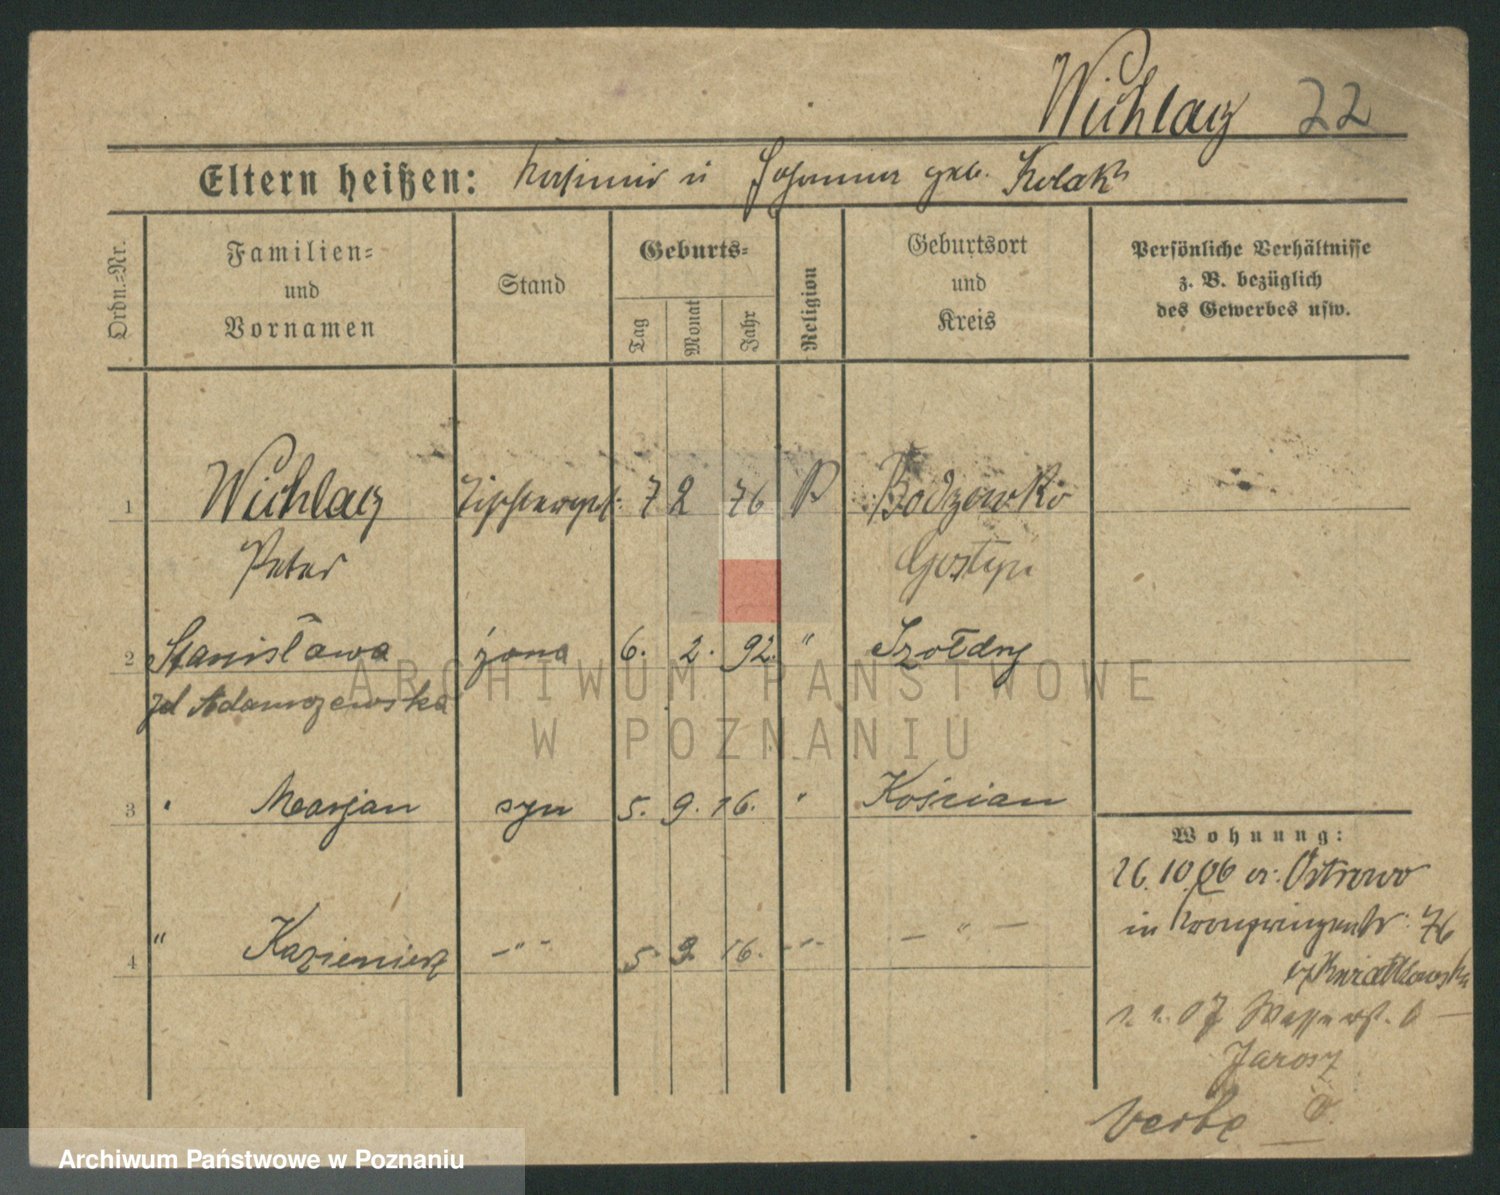 Wichlacz 22
Eltern heißen: Kasimir u Johanna geb. Kolak
Ordn.-Nr.
Familien-
und
Vornamen
Stand
Geburts-
Tag
Monat
Jahr
Religion
Geburtsort
und
Kreis
Persönliche Verhältnisse
z. B. bezüglich
des Gewerbes usw.
1 Wichlacz Tischlerges. 7 2 76 R Bodzewko
Peter Gostyn
2 Stanisława żona 6. 2. 92. " Szołdry
zd Adamczewska
3 " Marjan syn 5. 9. 16. " Kościan
4 " Kazimierz -"- 5. 9. 16. -"- -"-
Wohnung:
26.10.06 v. Ostrowo
in Kronprinzenstr. 76
b/Kwiatkowska
1. 2. 07 Wasserst.
Jarosz
ARCHIWUM PAŃSTWOWE
W POZNANIU
Archiwum Państwowe w Poznaniu